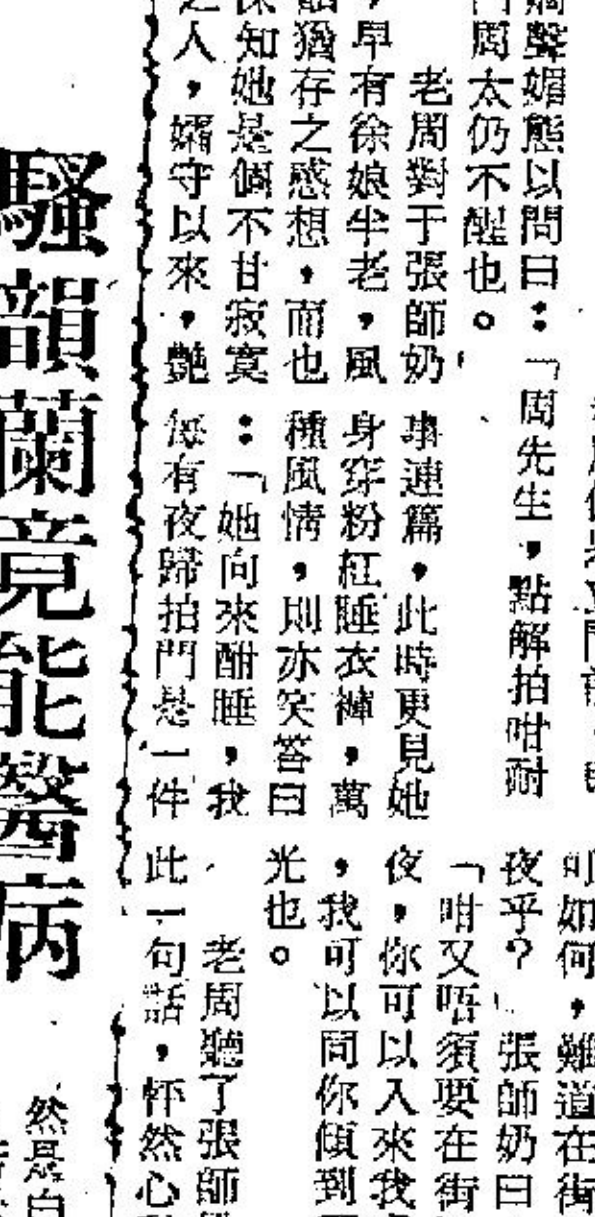 聲媚態以問曰：「周先生，點解拍咁耐
周太仍不醒也。」
老周對于張師奶
，早有徐娘半老，風
猶存之感想，而也
知她是個不甘寂寞
之人，孀守以來，艷
事連篇，此時更見她
身穿粉紅睡衣褲，萬
種風情，則亦笑答曰
：「她向來酣睡，我
每有夜歸拍門是一件
可如何，難道在街
夜乎？」張師奶曰
「咁又唔須要在街
夜，你可以入來我
，我可以同你傾到
光也。
老周聽了張師
此一句話，怦然心
騷韻蘭竟能醫病
然是自